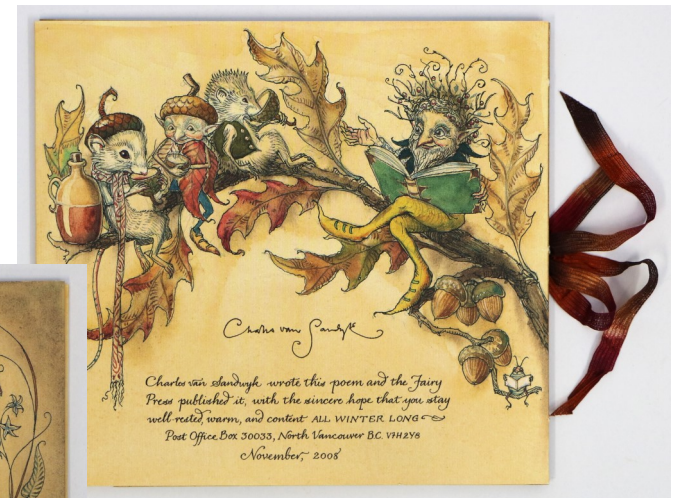 Charles van Sandwyk
Charles van Sandwyk wrote this poem and the Fairy
Press published it, with the sincere hope that you stay
well rested, warm, and content ALL WINTER LONG
Post Office Box 30033, North Vancouver B.C. V7H2Y8
November, 2008